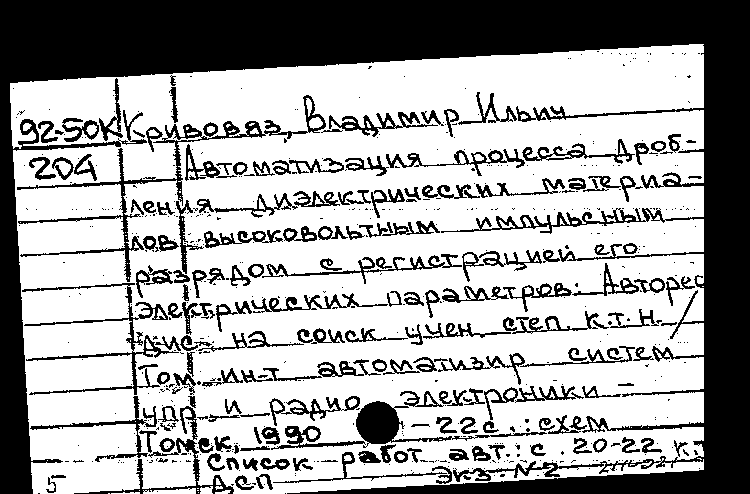 92-50К Кривовяз, Владимир Ильич
204 Автоматизация процесса дроб-
ления диэлектрических материа-
лов высоковольтным импульсным
разрядом с регистрацией его
электрических параметров: Автореф
дис. на соиск учен. степ. к.т.н. /
Том. ин-т автоматизир систем
упр. и радио электроники –
Томск, 1990 – 22с.: схем
Список работ авт.: с. 20-22 к.т
5 ДСП Экз. №2